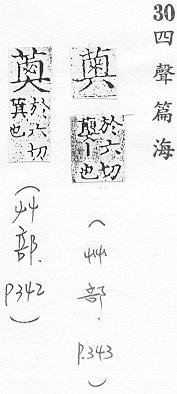 30四聲篇海
於六切
也
(艸部.P.343)
於六切
也
(艸部.P342)